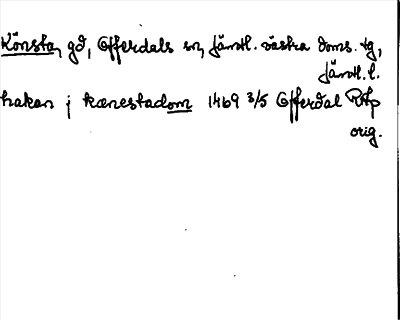 Könsta, gd, Offerdals sn, Jämtl. västra doms. tg,
Jämtl. l.
hakan j kænestadom 1469 3/5 Offerdal RAp
orig.